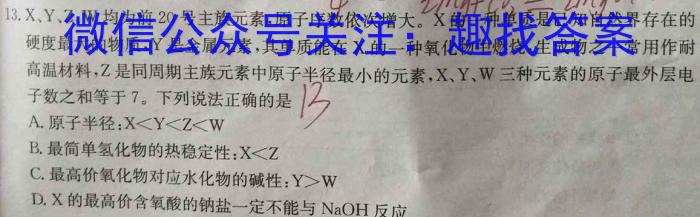 13.X、Y、Z、W均为前20号主族元素,原子序数依次增大。X的一种单质是已知自然界存在的
硬度最大的物质,Y是金属元素,其单质能在X的一种氧化物中燃烧,生成物之一常用作耐
微信公众号关注:趣找答案
高温材料,Z是同周期主族元素中原子半径最小的元素,X、Y、W三种元素的原子最外层电
子数之和等于7。下列说法正确的是 B
A.原子半径:X<Y<Z<W
B.最简单氢化物的热稳定性:X<Z
C.最高价氧化物对应水化物的碱性:Y>W
D.X的最高价含氧酸的钠盐一定不能与NaOH反应